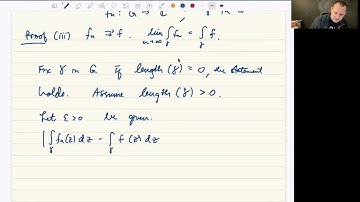 fn: G → ℂ, γ in G
Proof (iii) fn ⇉ f. lim n→∞ ∫γ fn = ∫γ f.
Fix γ in G. If length (γ) = 0, the statement
holds. Assume length (γ) > 0.
Let ε>0 be given.
|∫γ fn(z) dz - ∫γ f(z) dz